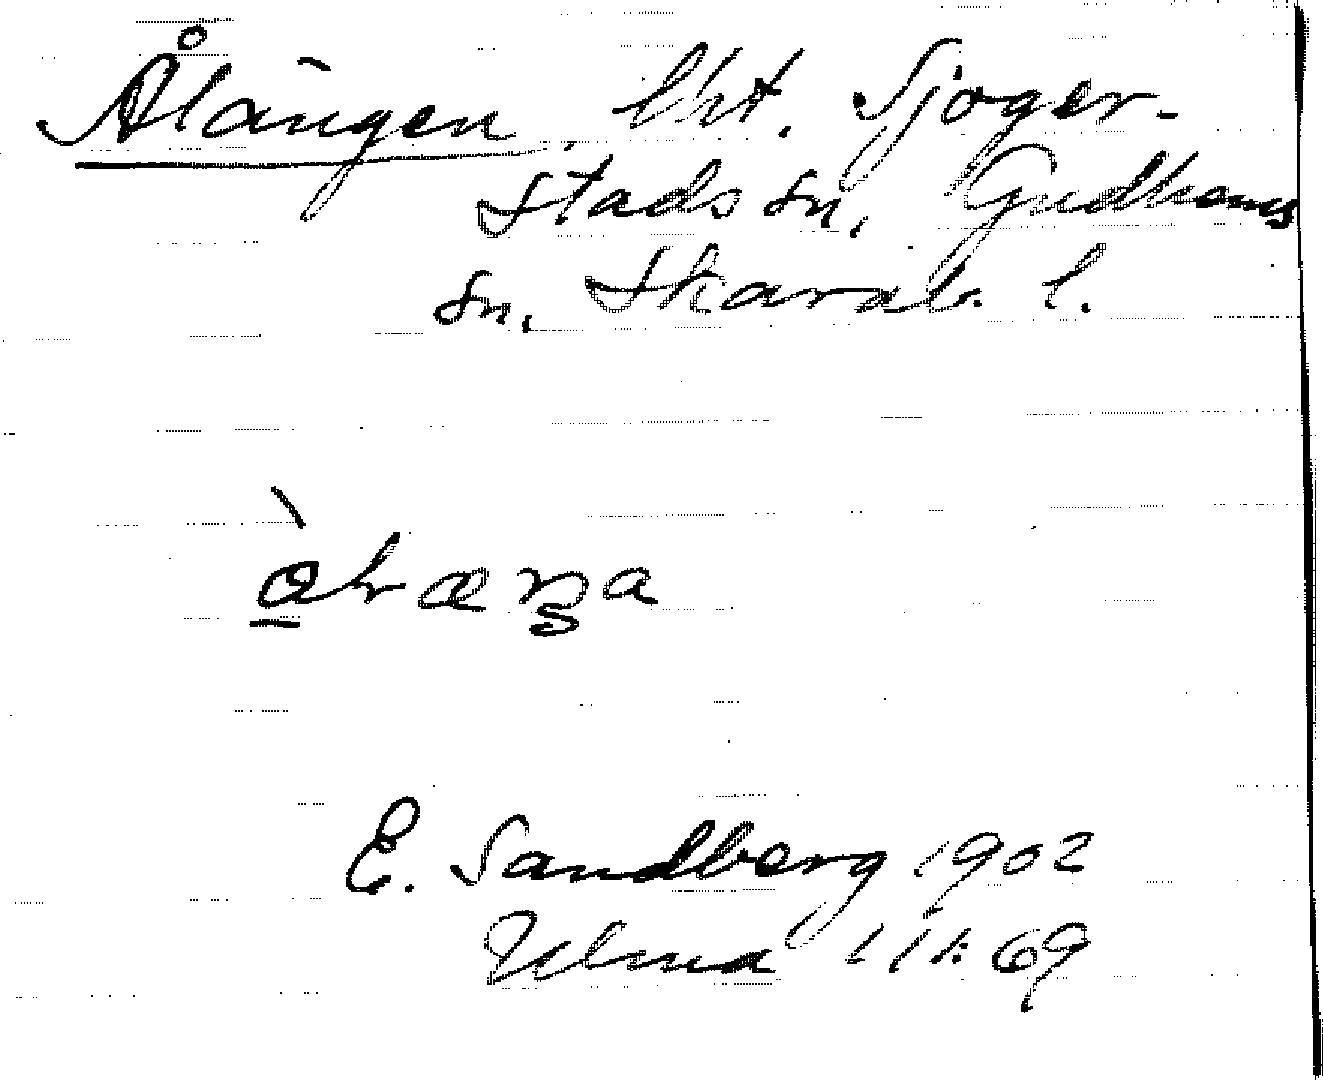 Ålängen, bht. Sjöger-
stads sn, Gudhems
sn. Skarab. l.
E. Sandberg 1902
Ulma 111:69